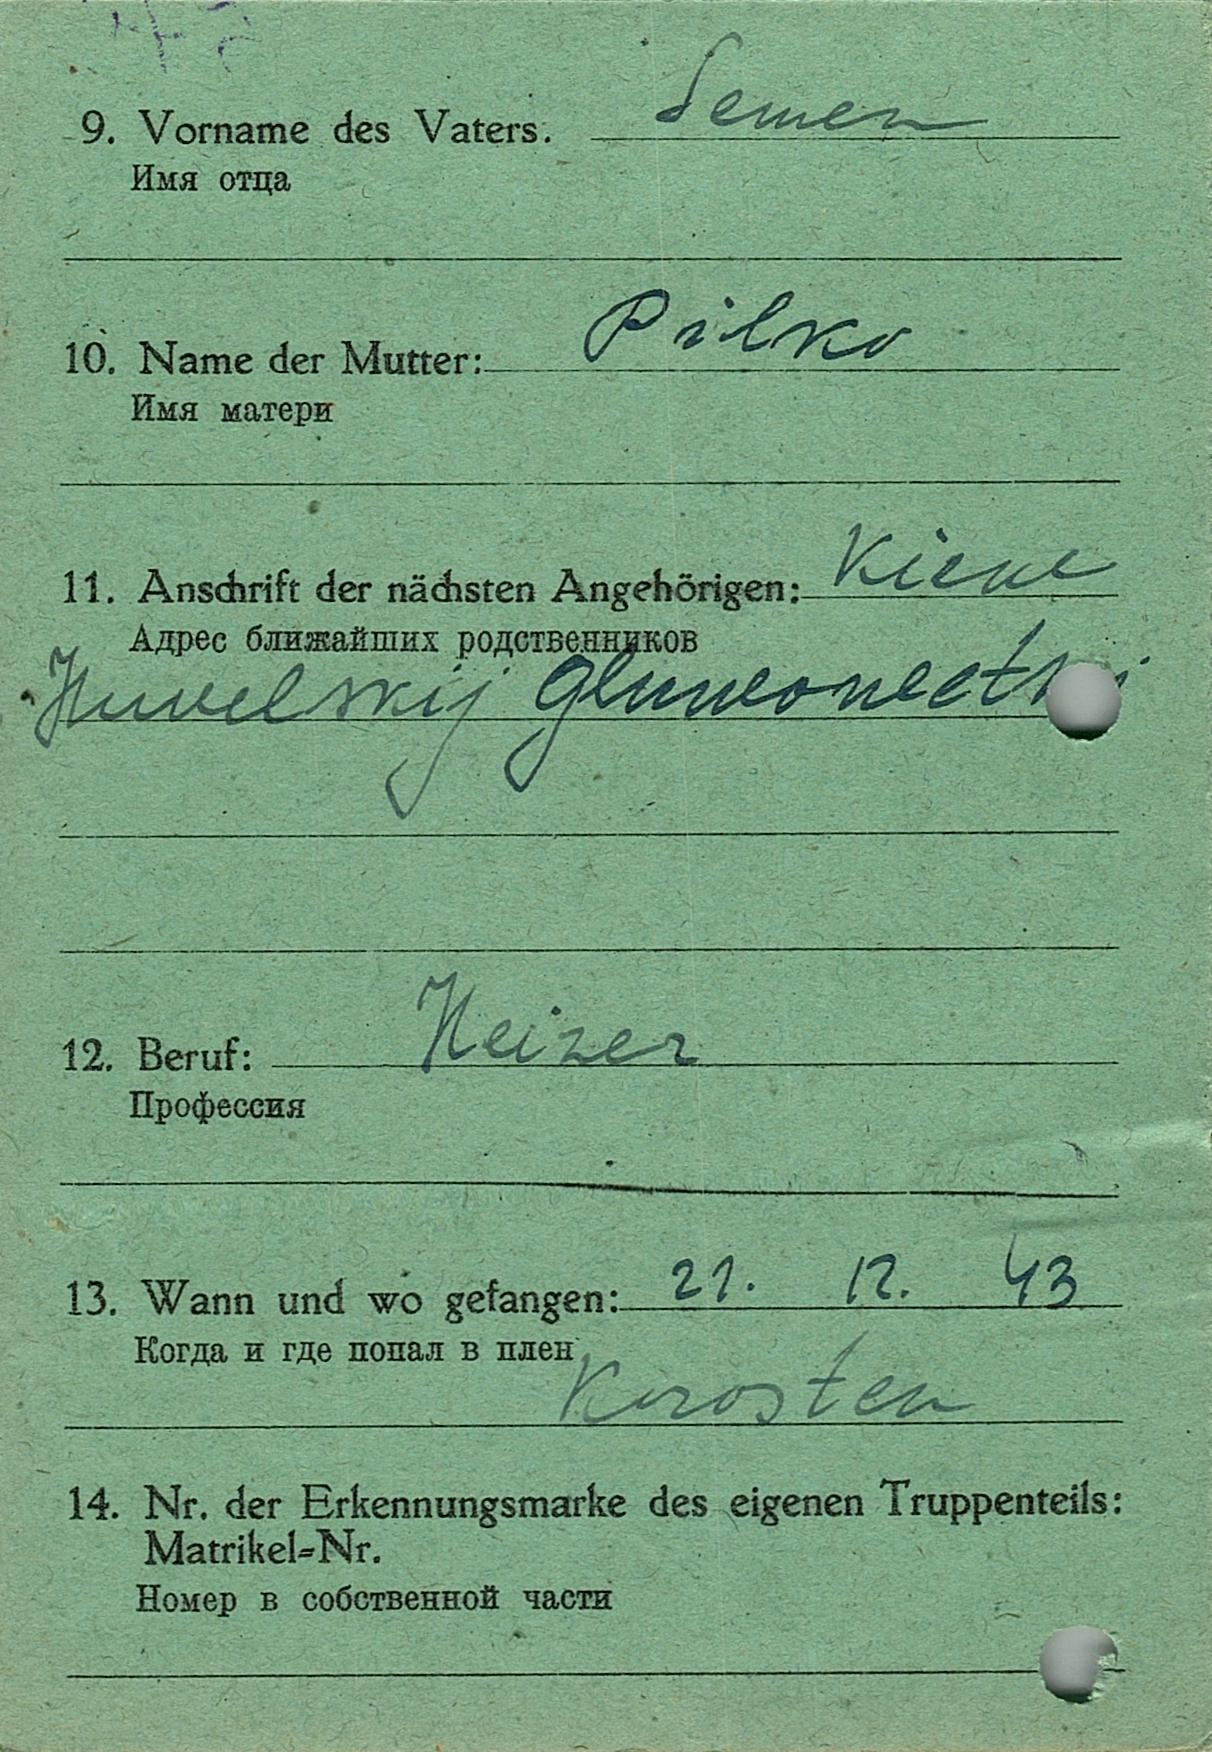 9. Vorname des Vaters. Semen
Имя отца
10. Name der Mutter: Pilko
Имя матери
11. Anschrift der nächsten Angehörigen:
Адрес ближайших родственников
12. Beruf: Heizer
Профессия
13. Wann und wo gefangen: 21. 12. 43
Когда и где попал в плен
Korosten
14. Nr. der Erkennungsmarke des eigenen Truppenteils:
Matrikel=Nr.
Номер в собственной части